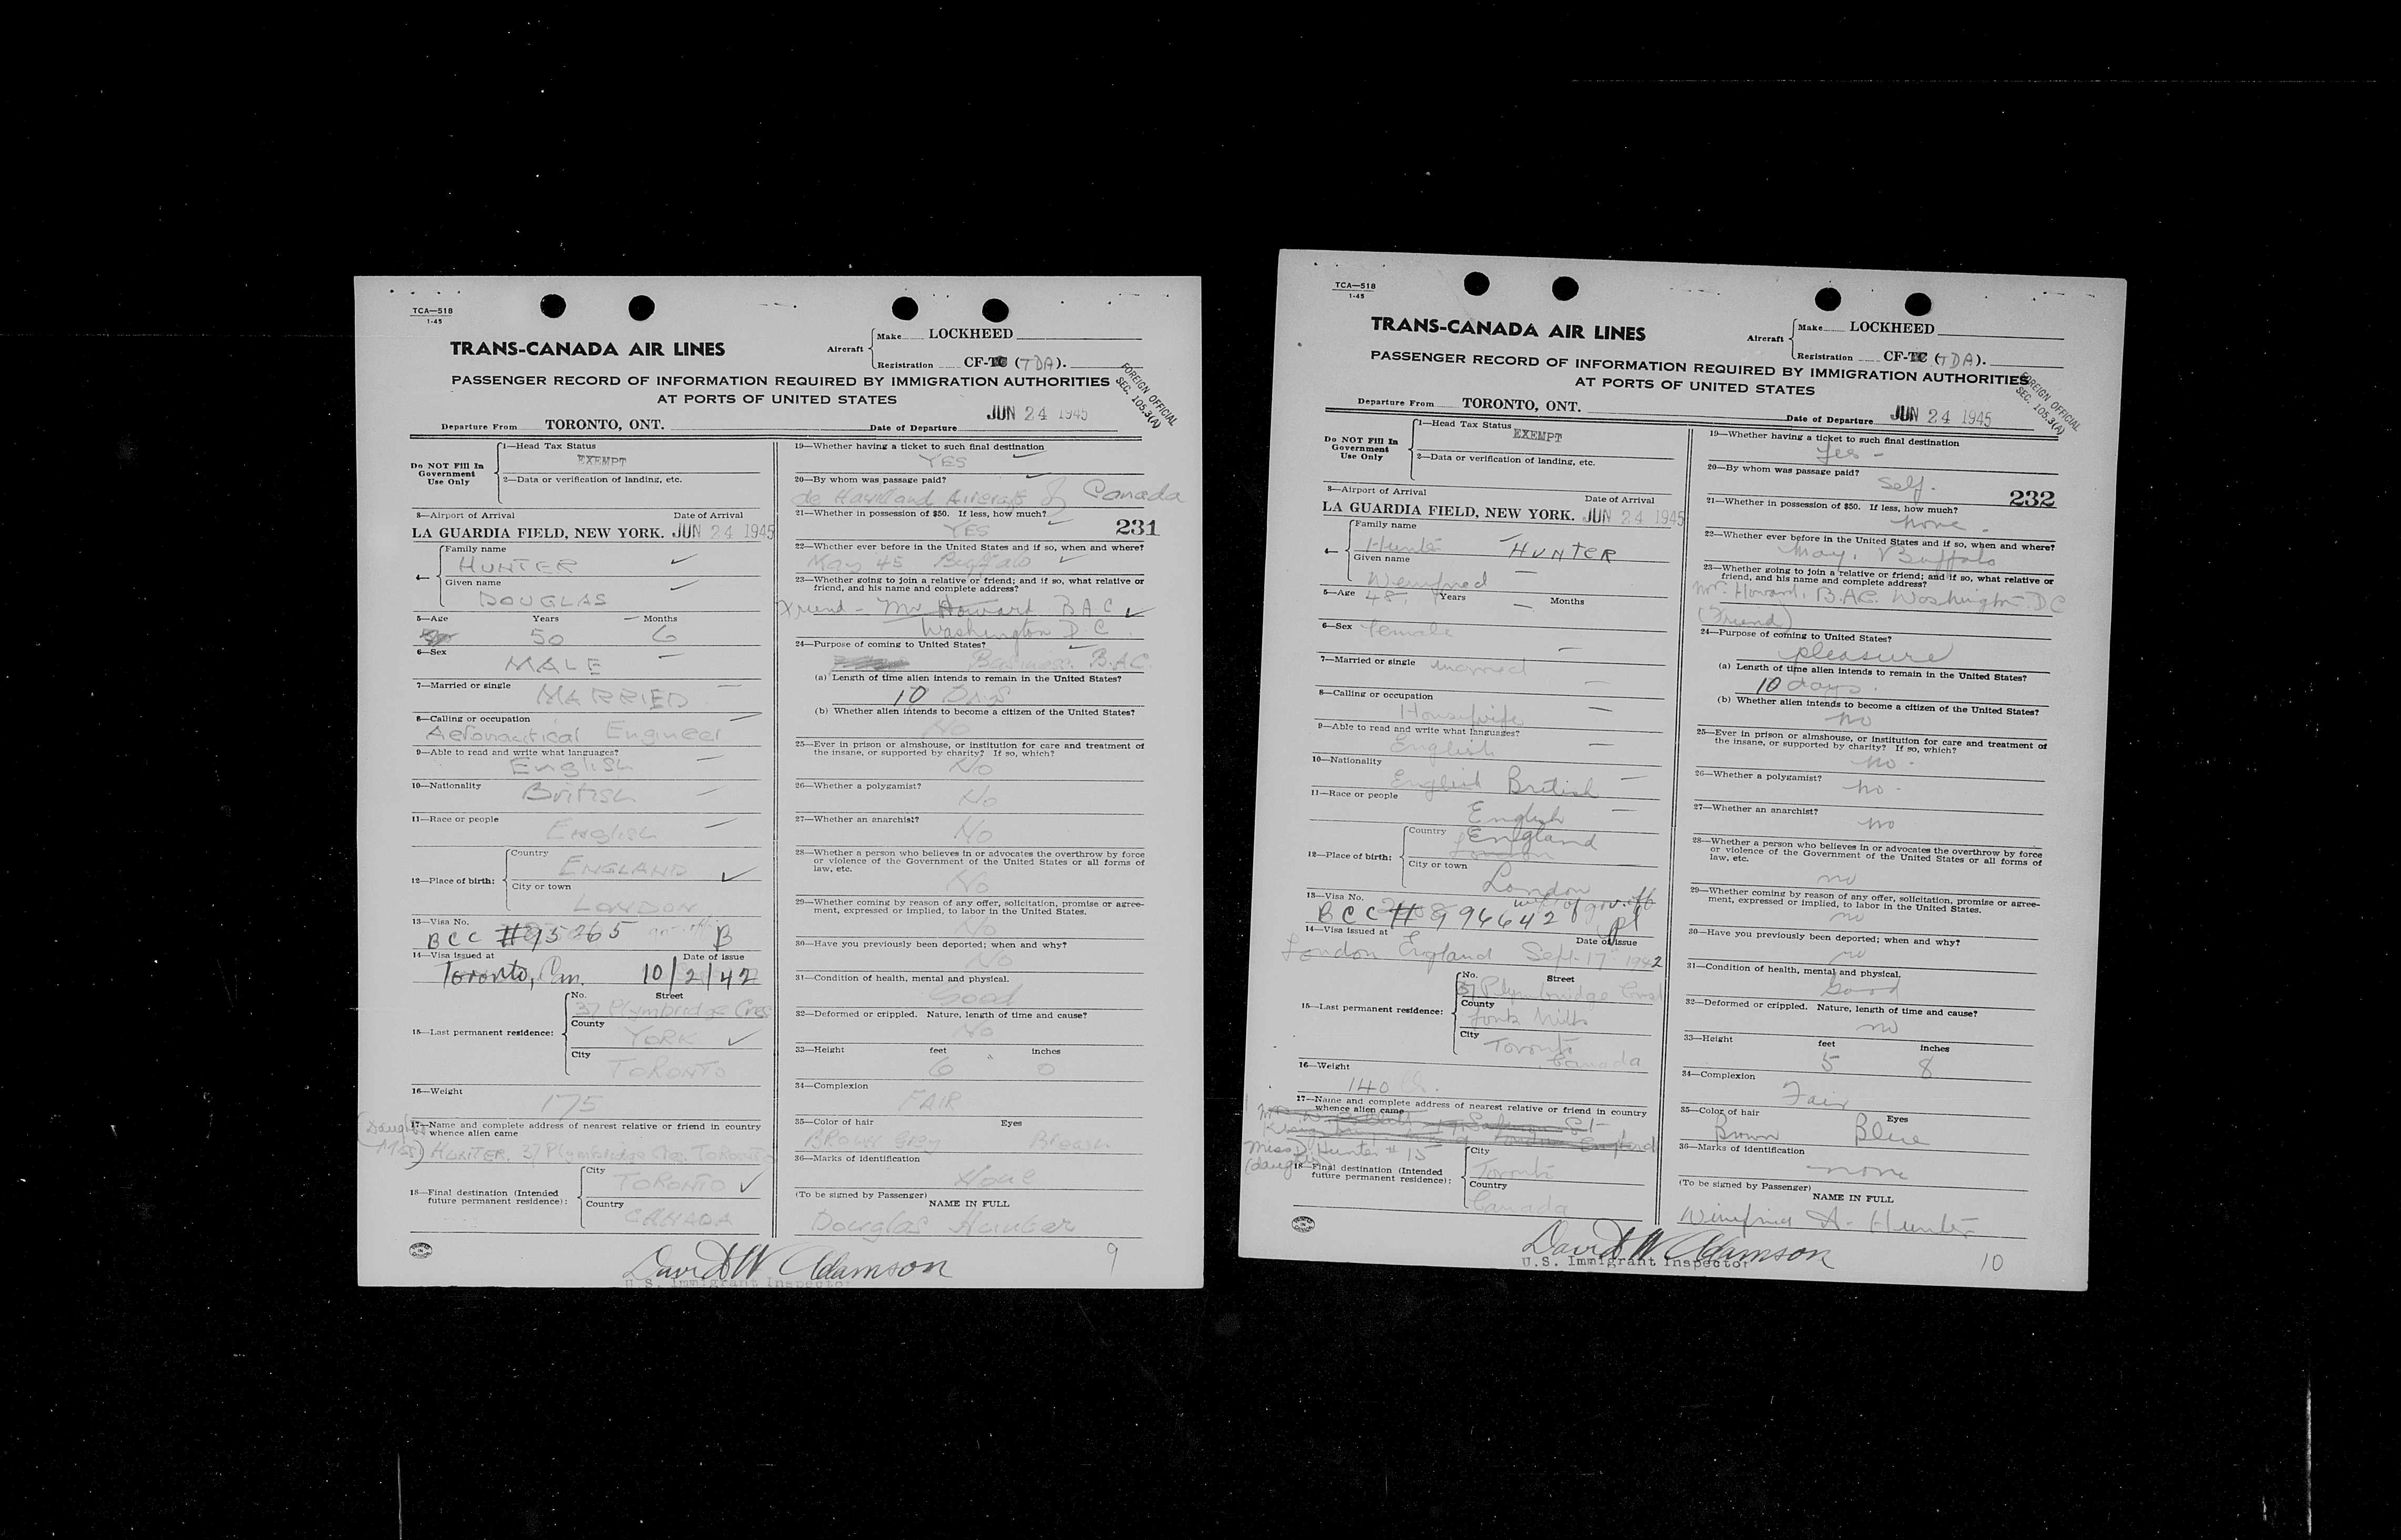 TCA—518
1-45
TRANS-CANADA AIR LINES
Aircraft
Make LOCKHEED
Registration CF-TC (TDA).
PASSENGER RECORD OF INFORMATION REQUIRED BY IMMIGRATION AUTHORITIES
AT PORTS OF UNITED STATES
FOREIGN OFFICIAL
SEC. 105.3(A)
Departure From TORONTO, ONT. Date of Departure JUN 24 1945
Do NOT Fill In
Government
Use Only
1—Head Tax Status
EXEMPT
2—Data or verification of landing, etc.
3—Airport of Arrival Date of Arrival
LA GUARDIA FIELD, NEW YORK. JUN 24 1945
4—
Family name
HUNTER
Given name
DOUGLAS
5—Age Years Months
50 6
6—Sex
MALE
7—Married or single
MARRIED
8—Calling or occupation
Aeronautical Engineer
9—Able to read and write what languages?
English
10—Nationality
British
11—Race or people
English
12—Place of birth:
Country
ENGLAND
City or town
LONDON
13—Visa No.
BCC #95265
14—Visa issued at Date of issue
Toronto, Can. 10/2/42
15—Last permanent residence:
No. Street
37 Plymbridge Cres
County
YORK
City
TORONTO
16—Weight
175
17—Name and complete address of nearest relative or friend in country
whence alien came
(Daughter
Miss) HUNTER. 37 Plymbridge Cres, Toronto
18—Final destination (Intended
future permanent residence):
City
TORONTO
Country
CANADA
19—Whether having a ticket to such final destination
YES
20—By whom was passage paid?
de Havilland Aircraft of Canada
21—Whether in possession of $50. If less, how much?
YES
231
22—Whether ever before in the United States and if so, when and where?
May 45 Buffalo
23—Whether going to join a relative or friend; and if so, what relative or
friend, and his name and complete address?
Friend - Mr Howard B A C
Washington D C
24—Purpose of coming to United States?
Business. B.A.C.
(a) Length of time alien intends to remain in the United States?
10 DAYS
(b) Whether alien intends to become a citizen of the United States?
No
25—Ever in prison or almshouse, or institution for care and treatment of
the insane, or supported by charity? If so, which?
No
26—Whether a polygamist?
No
27—Whether an anarchist?
No
28—Whether a person who believes in or advocates the overthrow by force
or violence of the Government of the United States or all forms of
law, etc.
No
29—Whether coming by reason of any offer, solicitation, promise or agree-
ment, expressed or implied, to labor in the United States.
No
30—Have you previously been deported; when and why?
No
31—Condition of health, mental and physical.
Good
32—Deformed or crippled. Nature, length of time and cause?
No
33—Height feet inches
6 0
34—Complexion
FAIR
35—Color of hair Eyes
Brown Grey Brown
36—Marks of identification
None
(To be signed by Passenger)
NAME IN FULL
Douglas Hunter
David W Adamson
U.S. Immigrant Inspector
9
TCA—518
1-45
TRANS-CANADA AIR LINES
Aircraft
Make LOCKHEED
Registration CF-TC (TDA).
PASSENGER RECORD OF INFORMATION REQUIRED BY IMMIGRATION AUTHORITIES
AT PORTS OF UNITED STATES
FOREIGN OFFICIAL
SEC. 105.3(A)
Departure From TORONTO, ONT. Date of Departure JUN 24 1945
Do NOT Fill In
Government
Use Only
1—Head Tax Status
EXEMPT
2—Data or verification of landing, etc.
3—Airport of Arrival Date of Arrival
LA GUARDIA FIELD, NEW YORK. JUN 24 1945
4—
Family name
Hunter HUNTER
Given name
5—Age 48 Years Months
6—Sex female
7—Married or single married
8—Calling or occupation
Housewife
9—Able to read and write what languages?
English
10—Nationality
English British
11—Race or people
English
12—Place of birth:
Country
England
City or town
London
13—Visa No.
BCC # 994642 wife of gov. off
14—Visa issued at Date of issue
London England Sept. 17 1942
15—Last permanent residence:
No. Street
37 Plymbridge Crest
County
York Mills
City
Toronto
Canada
16—Weight
140
17—Name and complete address of nearest relative or friend in country
whence alien came
Miss D. Hunter # 15
(daughter)
18—Final destination (Intended
future permanent residence):
City
Toronto
Country
Canada
19—Whether having a ticket to such final destination
Yes -
20—By whom was passage paid?
Self.
232
21—Whether in possession of $50. If less, how much?
none -
22—Whether ever before in the United States and if so, when and where?
May. Buffalo
23—Whether going to join a relative or friend; and if so, what relative or
friend, and his name and complete address?
Mr. Howard, B.A.C. Washington D C
(Friend)
24—Purpose of coming to United States?
pleasure
(a) Length of time alien intends to remain in the United States?
10 days.
(b) Whether alien intends to become a citizen of the United States?
no
25—Ever in prison or almshouse, or institution for care and treatment of
the insane, or supported by charity? If so, which?
no -
26—Whether a polygamist?
no -
27—Whether an anarchist?
no
28—Whether a person who believes in or advocates the overthrow by force
or violence of the Government of the United States or all forms of
law, etc.
no
29—Whether coming by reason of any offer, solicitation, promise or agree-
ment, expressed or implied, to labor in the United States.
no
30—Have you previously been deported; when and why?
no
31—Condition of health, mental and physical.
Good
32—Deformed or crippled. Nature, length of time and cause?
no
33—Height feet inches
5 8
34—Complexion
Fair
35—Color of hair Eyes
Brown Blue
36—Marks of identification
none
(To be signed by Passenger)
NAME IN FULL
Winifred A. Hunter
David W Adamson
U.S. Immigrant Inspector
10